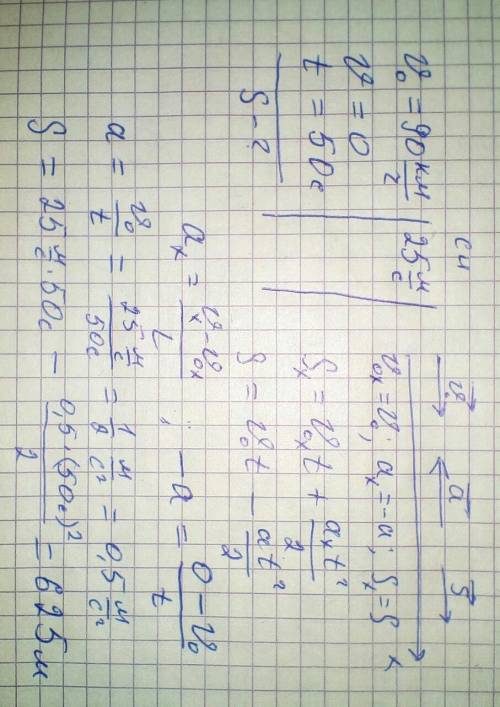 v₀ = 90 км/г | СИ 25 м/с
v = 0
t = 50 с
S - ?
v⃗₀ a⃗ S⃗
x
v₀ₓ = v₀; aₓ = -a; Sₓ = S
Sₓ = v₀ₓt + aₓt²/2
S = v₀t - at²/2
aₓ = (vₓ - v₀ₓ)/t; -a = (0 - v₀)/t
a = v₀/t = 25 м/с / 50 с = 1/2 м/с² = 0,5 м/с²
S = 25 м/с · 50 с - 0,5 · (50 с)²/2 = 625 м